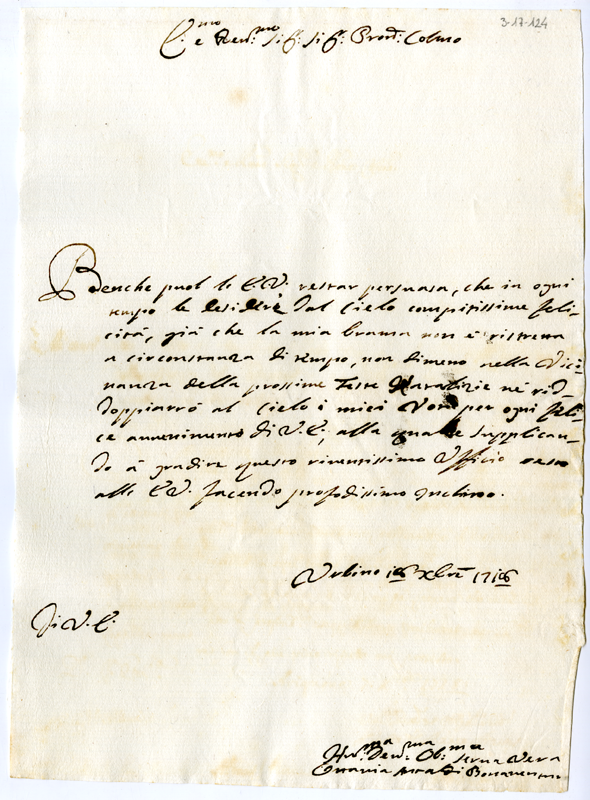 3-17-124
E.mo e Rev.mo Sig.r Sig.r Pron. Colmo
Benche puol le E.V. restar persuasa, che in ogni
tempo le desidero dal Cielo compitissime feli-
cità, già che la mia brama non è ristretta
a circonstanza di tempo, non dimeno nella Vici-
nanza della prossime feste Natalizie ne rid-
doppiarrò al Cielo i miei Voti per ogni feli-
ce avvenimento di V.E., alla quale supplican-
do à gradire questo riverentissimo Ufficio resto
alli E.V. facendo profodissimo Inchino.
Urbino 16 Xbre 1716
Di V.E.
Hu.ma Dev.ma Ob.ma Serva Vera
Ottavia